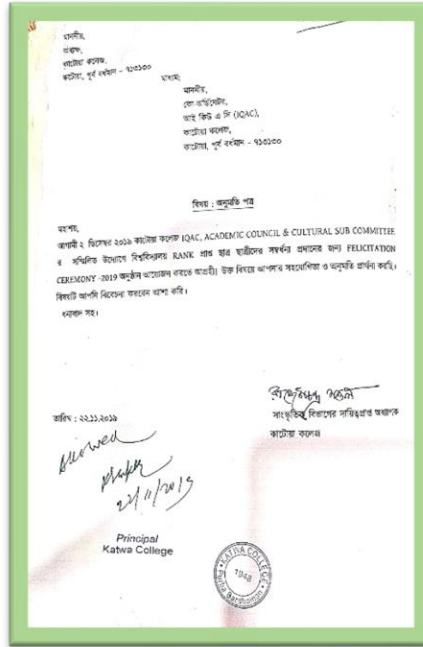 মাননীয়,
প্রধ্যক্ষ,
কাটোয়া কলেজ,
কাটোয়া, পূর্ব বর্ধমান – ৭১৩১৩০
মাধ্যম:
মাননীয়,
কো অর্ডিনেটর,
আই কিউ এ সি (IQAC),
কাটোয়া কলেজ,
কাটোয়া, পূর্ব বর্ধমান – ৭১৩১৩০
বিষয় : অনুমতি পত্র
মহাশয়,
আগামী ২ ডিসেম্বর ২০১৯ কাটোয়া কলেজ IQAC, ACADEMIC COUNCIL & CULTURAL SUB COMMITTEE
র সম্মিলিত উদ্যোগে বিশ্ববিদ্যালয় RANK প্রাপ্ত ছাত্র ছাত্রীদের সম্বর্ধনা প্রদানের জন্য FELICITATION
CEREMONY -2019 অনুষ্ঠান আয়োজন করতে আগ্রহী। উক্ত বিষয়ে আপনার সহযোগিতা ও অনুমতি প্রার্থনা করছি।
বিষয়টি আপনি বিবেচনা করবেন আশা করি।
ধন্যবাদ সহ।
তারিখ : ২২.১১.২০১৯
সাংস্কৃতিক বিভাগের দায়িত্বপ্রাপ্ত অধ্যাপক
কাটোয়া কলেজ
Allowed
22/11/2019
Principal
Katwa College
KATWA COLLEGE
1948
Purba Bardhaman